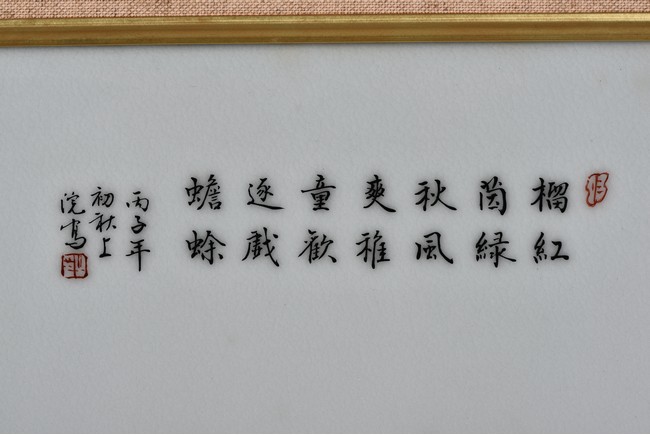 榴紅
茵綠
秋風
爽稚
童歡
逐戲
蟾蜍
丙子年
初秋上
浣寫